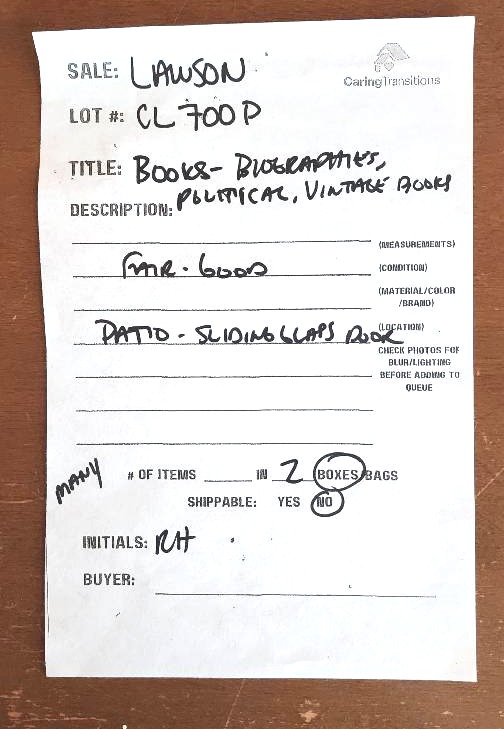 SALE: LAWSON
CaringTransitions
LOT #: CL700P
TITLE: BOOKS - BIOGRAPHIES,
POLITICAL, VINTAGE BOOKS
DESCRIPTION:
(MEASUREMENTS)
FAIR - GOOD (CONDITION)
(MATERIAL/COLOR
/BRAND)
PATIO - SLIDING GLASS DOOR (LOCATION)
CHECK PHOTOS FOR
BLUR/LIGHTING
BEFORE ADDING TO
QUEUE
MANY # OF ITEMS ____ IN 2 BOXES/BAGS
SHIPPABLE: YES NO
INITIALS: RH
BUYER: